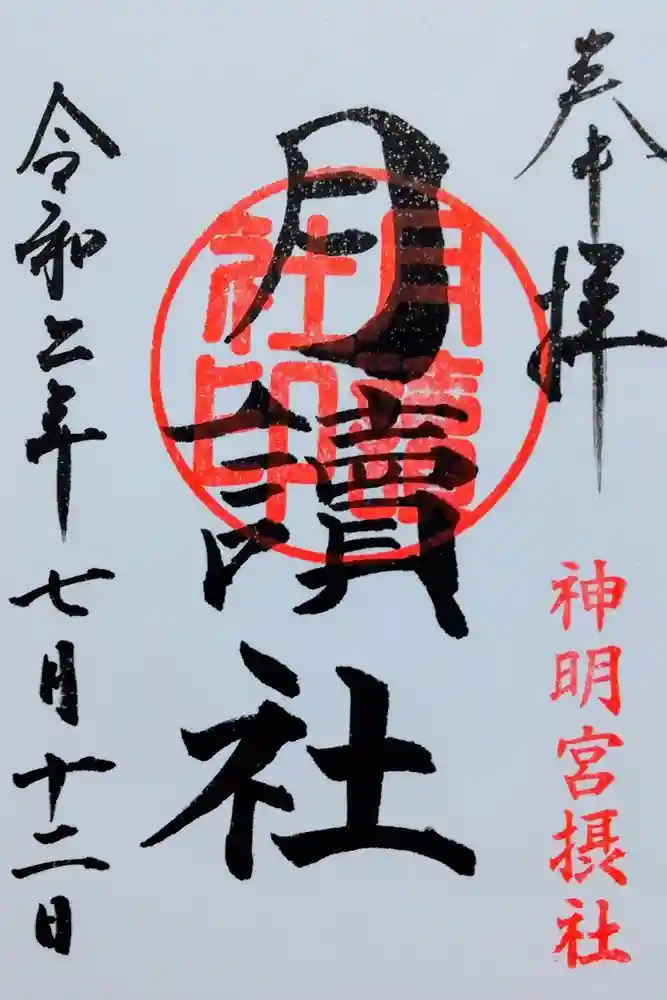 奉拝
神明宮摂社
月讀社
月讀社印
令和二年七月十二日